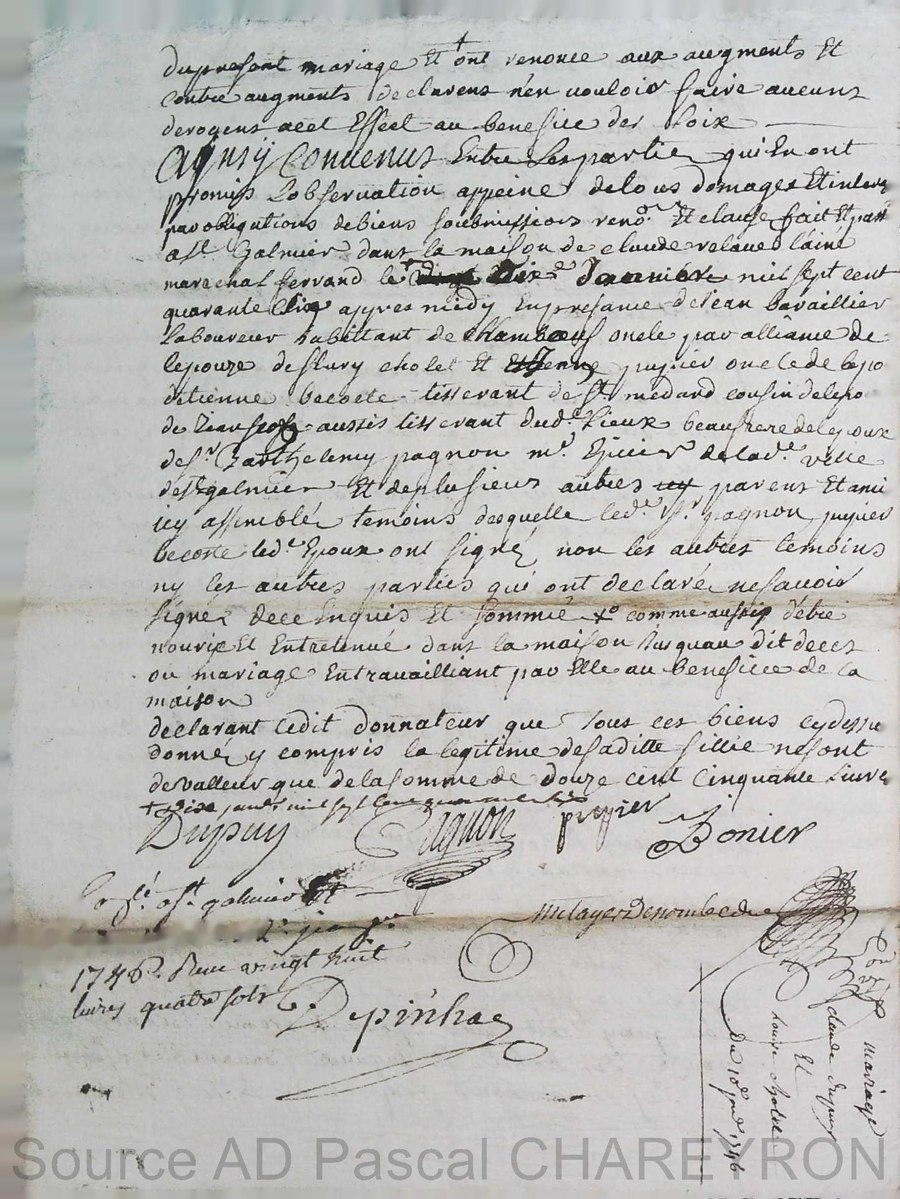 du present mariage Et + ont renonce aux augments Et
contre augments declarent n'en vouloir faire aucuns
derogens a cet Effect au benefice des Loix
Ainsy Convenus Entre Les partie qui En ont
promis L'observation appeine de tous domages Et interes
par obligations de biens soubmissions ren.on Et clause fait Et passé
a St. Galmier dans la maison de claude relave l'ainé
marechal ferrand le + dix.e Januier mil sept cent
quarante Six appres midy En presance de Jean bavaillier
Laboureur habittant de Chambœuf oncle par alliance de
lepouze de fleury cholet Et Etienne pupier oncle de lepo
d'etienne becoste tisserant de St. medard cousin de lepo
de aussis tisserant dud. Lieux beaufrere de lepoux
de Sr. Barthelemy pagnon m.e Epicier de lad.e ville
de St. galmier Et de plusieurs autres parens Et ami
icy assemblé temoins desquelle led. Sr. pagnon pupier
becoste led. Epoux ont signé non les autres temoins
ny les autres parties qui ont declaré ne savoir
signé de ce Enquis Et sommé comme aussis d'etre
nourie Et Entretenue dans la maison Jusquau dit deces
ou mariage En travailliant par Elle au benefice de la
maison
declarant Cedit donnateur que tous ces biens cy dessu
donné y compris la legitime de saditte fillie ne sont
de valleur que de la somme de douze cent cinquante Livre
+ dixe janvier mil sept cent quarante six
Dupuy Pagnon pupier Bonier
a St. galmier
1746. Reçu vingt huit
livres quatre sols
Depinhac
mariage
claude dupuy
Et
Louise cholet
Du 10e janv 1746
Source AD Pascal CHAREYRON